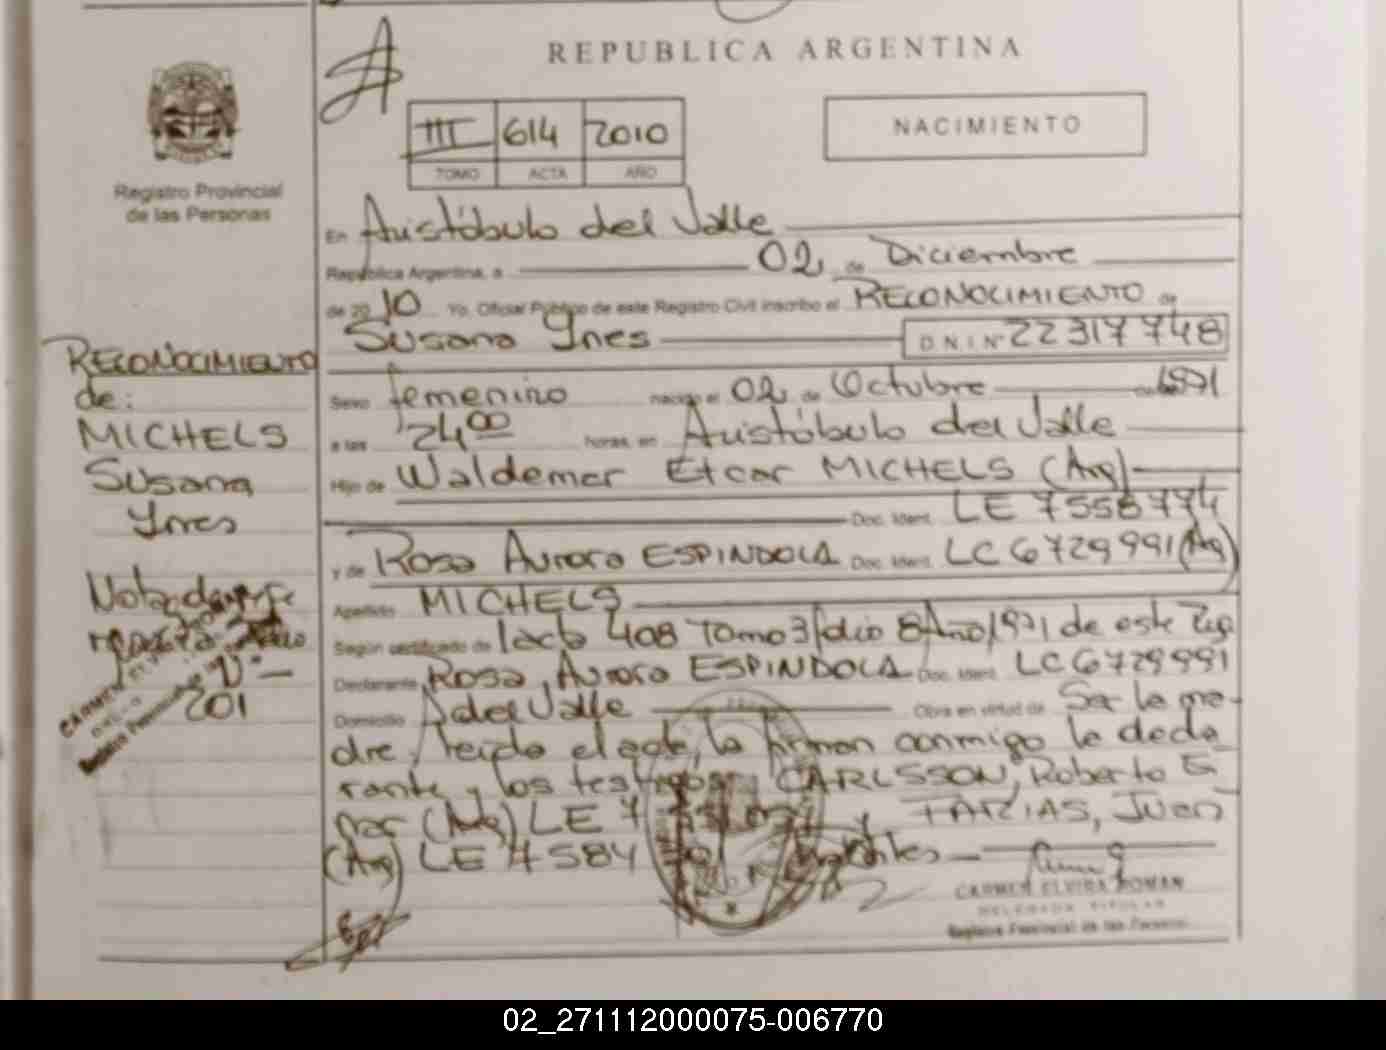 REPUBLICA ARGENTINA
III 614 2010
TOMO ACTA AÑO
NACIMIENTO
Registro Provincial
de las Personas
En Aristóbulo del Valle
República Argentina, a 02 de Diciembre
de 20 10 Yo, Oficial Público de este Registro Civil inscribo el RECONOCIMIENTO de
Susana Ynes D.N.I Nº 22317748
Sexo femenino nacido el 02 de Octubre de 1971
a las 24 00 horas, en Aristóbulo del Valle
Hijo de Waldemar Etcar MICHELS (Arg)
Doc. Ident. LE 7558774
y de Rosa Aurora ESPINDOLA Doc. Ident. LC 6729991 (Arg)
Apellido MICHELS
Según certificado de 1acta 408 Tomo 3 folio 8 Año 1971 de este Reg
Declarante Rosa Aurora ESPINDOLA Doc. Ident. LC 6729991
Domicilio A del Valle Obra en virtud de Ser la ma-
dre, leída el acta, la firman conmigo la decla
rante y los testigos CARLSSON, Roberto
(Arg) LE 7 y FARIAS, Juan
(Arg) LE 7584
CARMEN ELVIRA ROMAN
DELEGADA TITULAR
Registro Provincial de las Personas
RECONOCIMIENTO
de:
MICHELS
Susana
Ynes
Nota
201
02_271112000075-006770